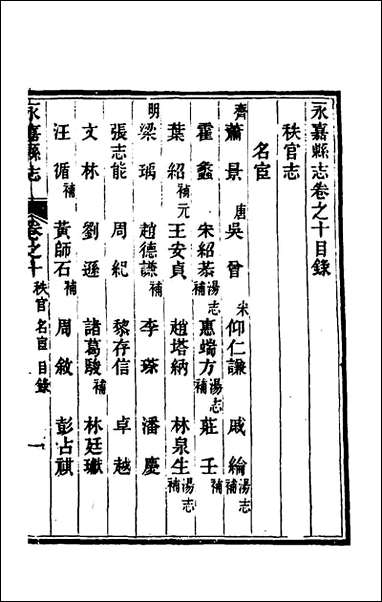 永嘉縣志卷之十目錄
秩官志
名宦
齊 蕭景 唐 吳曾 宋 仰仁謙 戚綸 湯志補
霍蠡 朱紹基 湯志補 惠端方 湯志補 莊壬
葉紹 補 元 王安貞 趙塔納 林泉生 湯志補
明 梁瑀 趙德謙 補 李瑧 潘慶
張志能 周紀 黎存信 卓越
文林 劉遜 諸葛駿 補 林廷瓛
汪循 補 黃師石 補 周敘 彭占祺
永嘉縣志 卷之十 秩官 名宦 目錄 一